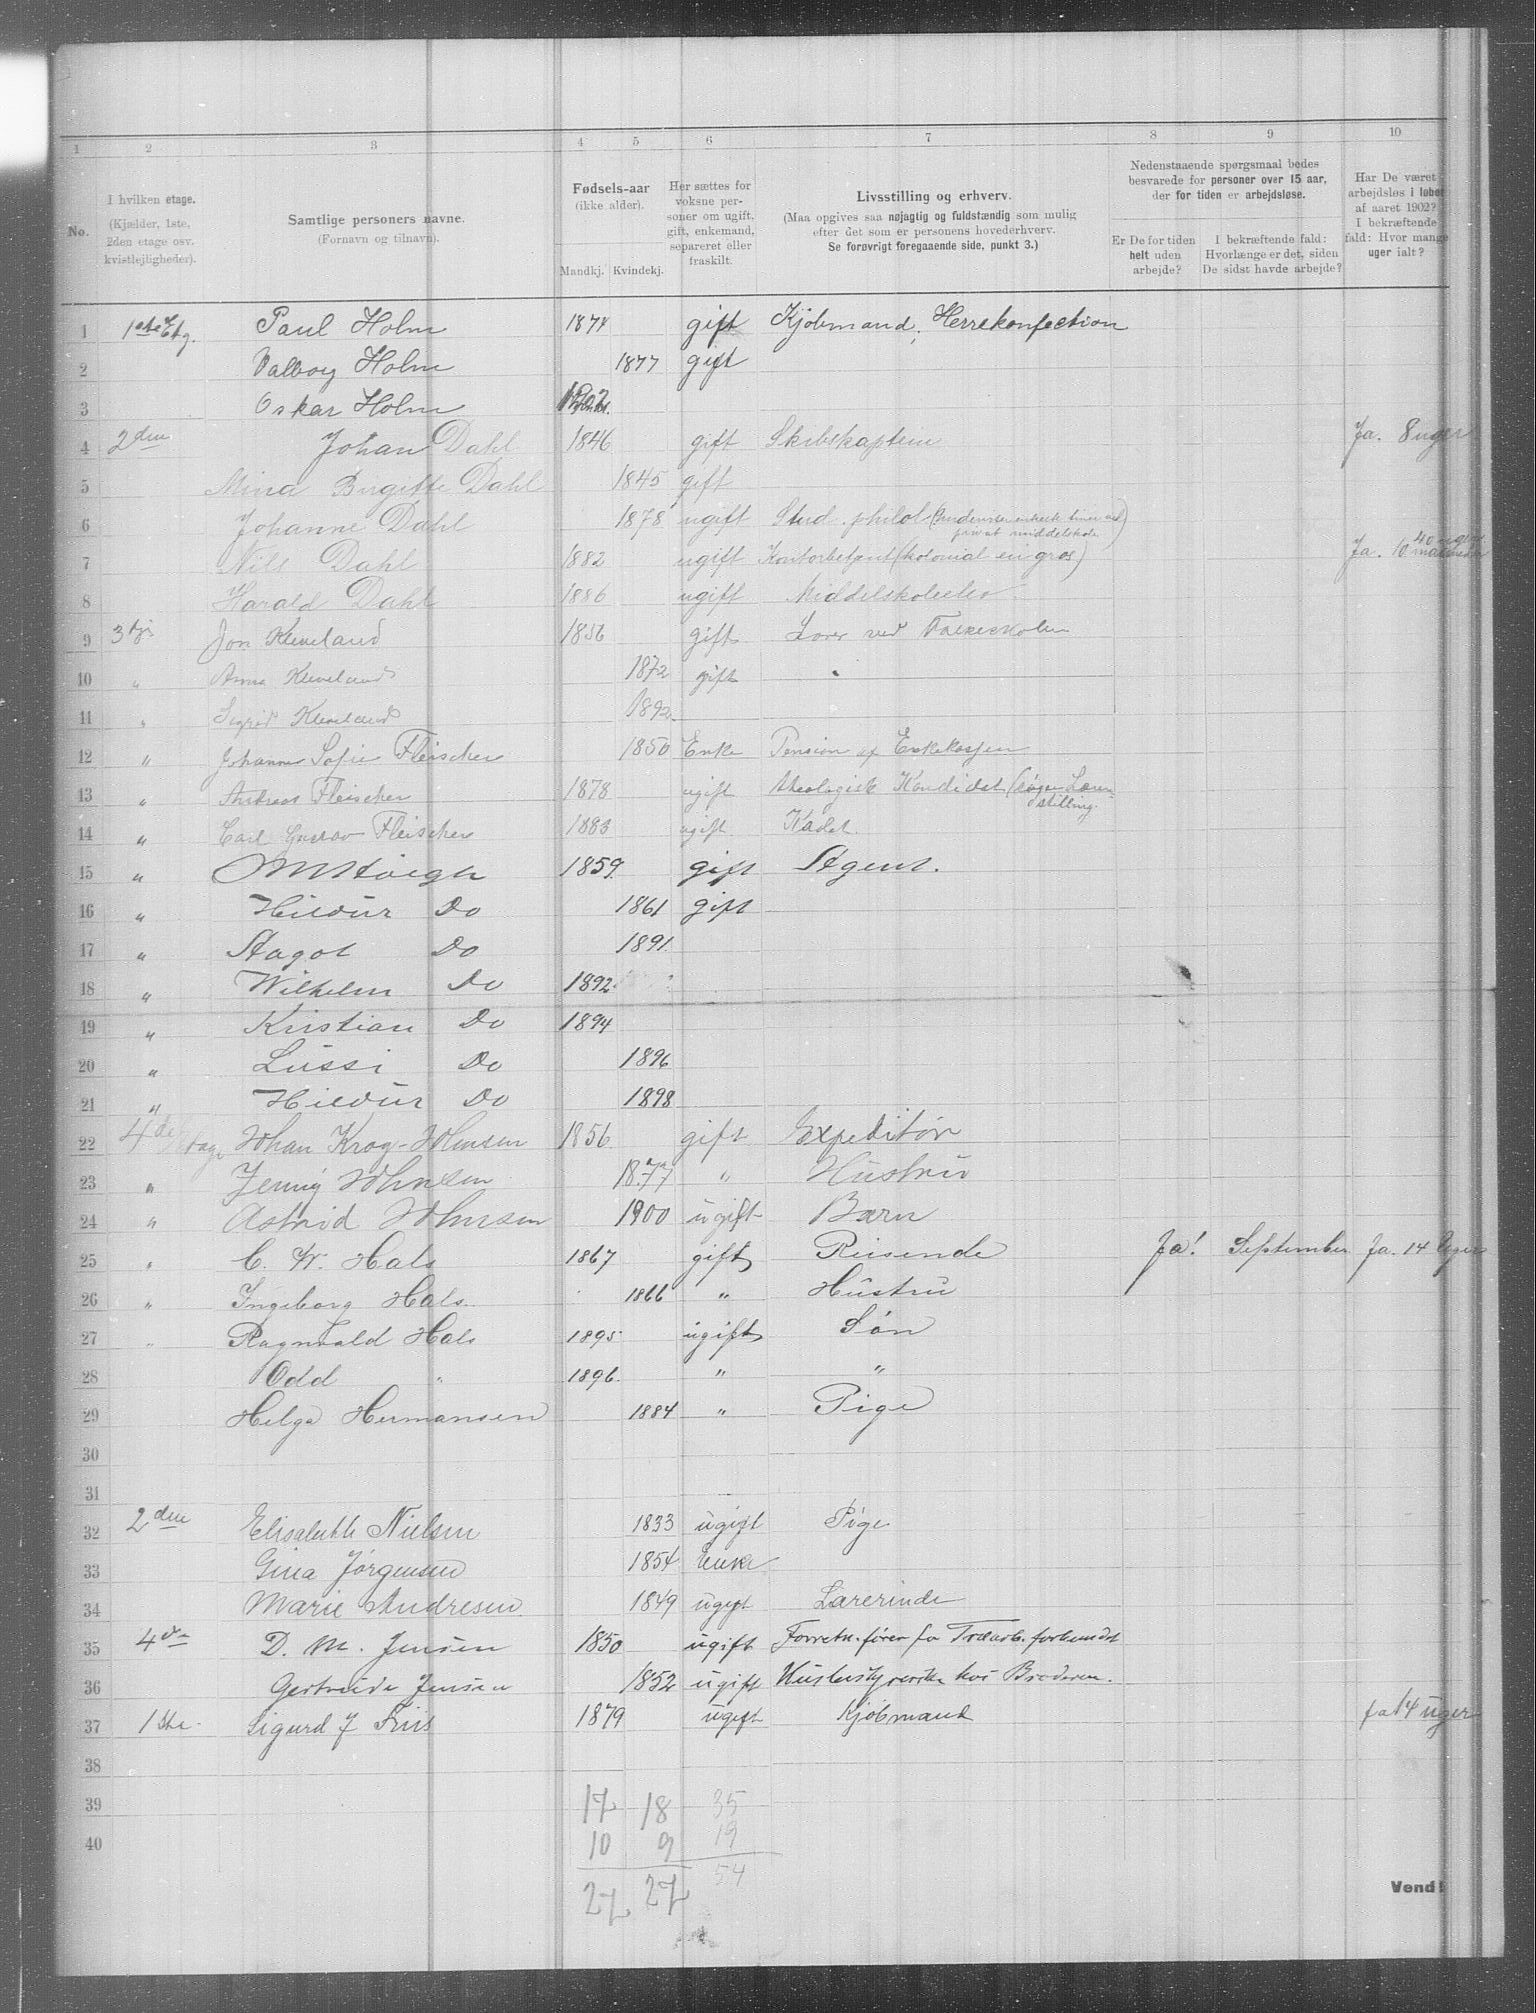 1 2 3 4 5 6 7 8 9 10
No.
I hvilken etage.
(Kjælder, 1ste,
2den etage osv.
kvistlejligheder).
Samtlige personers navne.
(Fornavn og tilnavn).
Fødsels-aar
(ikke alder).
Mandkj. Kvindekj.
Her sættes for
voksne per-
soner om ugift,
gift, enkemand,
separeret eller
fraskilt.
Livsstilling og erhverv.
(Maa opgives saa nøjagtig og fuldstændig som mulig
efter det som er personens hovederhverv.
Se forøvrigt foregaaende side, punkt 3.)
Nedenstaaende spørgsmaal bedes
besvarede for personer over 15 aar,
der for tiden er arbejdsløse.
Er De for tiden
helt uden
arbejde?
I bekræftende fald:
Hvorlænge er det, siden
De sidst havde arbejde?
Har De været
arbejdsløs i løbet
af aaret 1902?
I bekræftende
fald: Hvor mange
uger ialt?
1 1ste Etg. Paul Holm 1874 gift Kjøbmand, Herrekonfection
2 Valborg Holm 1877 gift
3 Oskar Holm 1902
4 2den Johan Dahl 1846 gift Skibskaptein Ja. 8 uger
5 Mina Birgitte Dahl 1845 gift
6 Johanne Dahl 1878 ugift Stud. philol. (underviser enkelte timer ved
privat middelskole)
7 Nils Dahl 1882 ugift Kontorbetjent (kolonial en gros) Ja. 10 maaneder 40 uger
8 Harald Dahl 1886 ugift Middelskoleelev
9 3dje Jon Kleveland 1856 gift Lærer ved Folkeskolen
10 " Anna Kleveland 1872 gift "
11 " Sigrid Kleveland 1892
12 " Johanne Sofie Fleischer 1850 Enke Pension af Enkekassen
13 " Andreas Fleischer 1878 ugift theologisk Kandidat (søger Lærer-
stilling.
14 " Carl Gustav Fleischer 1883 ugift Kadet
15 " 1859 gift Agent.
16 " Hildur Do 1861 gift
17 " Aagot Do 1891
18 " Wilhelm Do 1892
19 " Kristian Do 1894
20 " Lussi Do 1896
21 " Hildur Do 1898
22 4de etage Johan Krog-Johnsen 1856 gift Expeditør
23 " Jenny Johnsen 1877 " Hustru
24 " Astrid Johnsen 1900 ugift Barn
25 " C. W. Hals 1867 gift Reisende Ja! September Ja. 14 Uger
26 " Ingeborg Hals 1866 " Hustru
27 " Ragnvald Hals 1895 ugift Søn
28 Odd " 1896 " "
29 Helga Hermansen 1884 " Pige
30
31
32 2den Elisabeth Nielsen 1833 ugift Pige
33 Gina Jørgensen 1854 Enke
34 Marie Andresen 1849 ugift Lærerinde
35 4de D. M. Jensen 1850 ugift Forretn. fører for Træarb. forbundet
36 Gertrude Jensen 1852 ugift Husbestyrerske hos Broderen.
37 1ste Sigurd J Friis 1879 ugift Kjøbmand ja 14 uger
38
39 17 18 35
40 10 9 19
27 27 54
Vend!